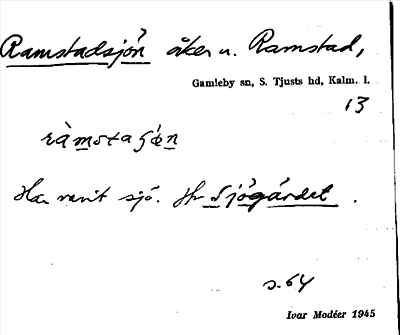 Ramstadsjön åker u. Ramstad,
Gamleby sn, S. Tjusts hd, Kalm. l.
13
Har varit sjö. Jfr Sjögärdet.
s. 64
Ivar Modéer 1945